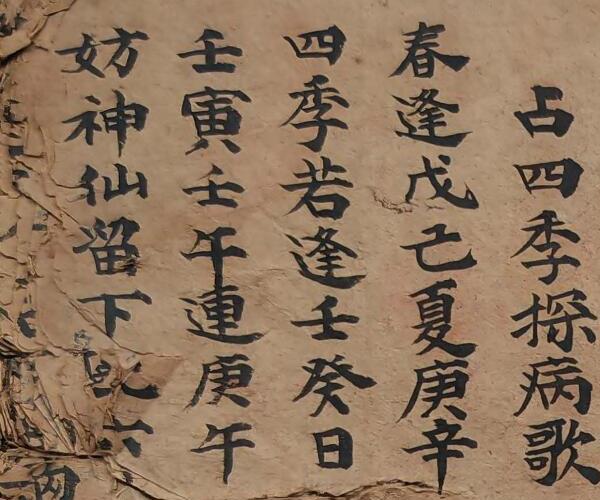 占四季探病歌
春逢戊己夏庚辛
四季若逢壬癸日
壬寅壬午連庚午
妨神仙留下